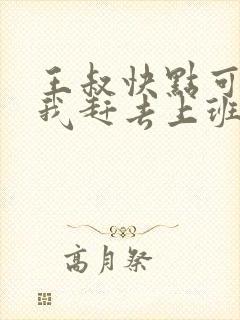 王叔快點可
我赶去上班
高月祭